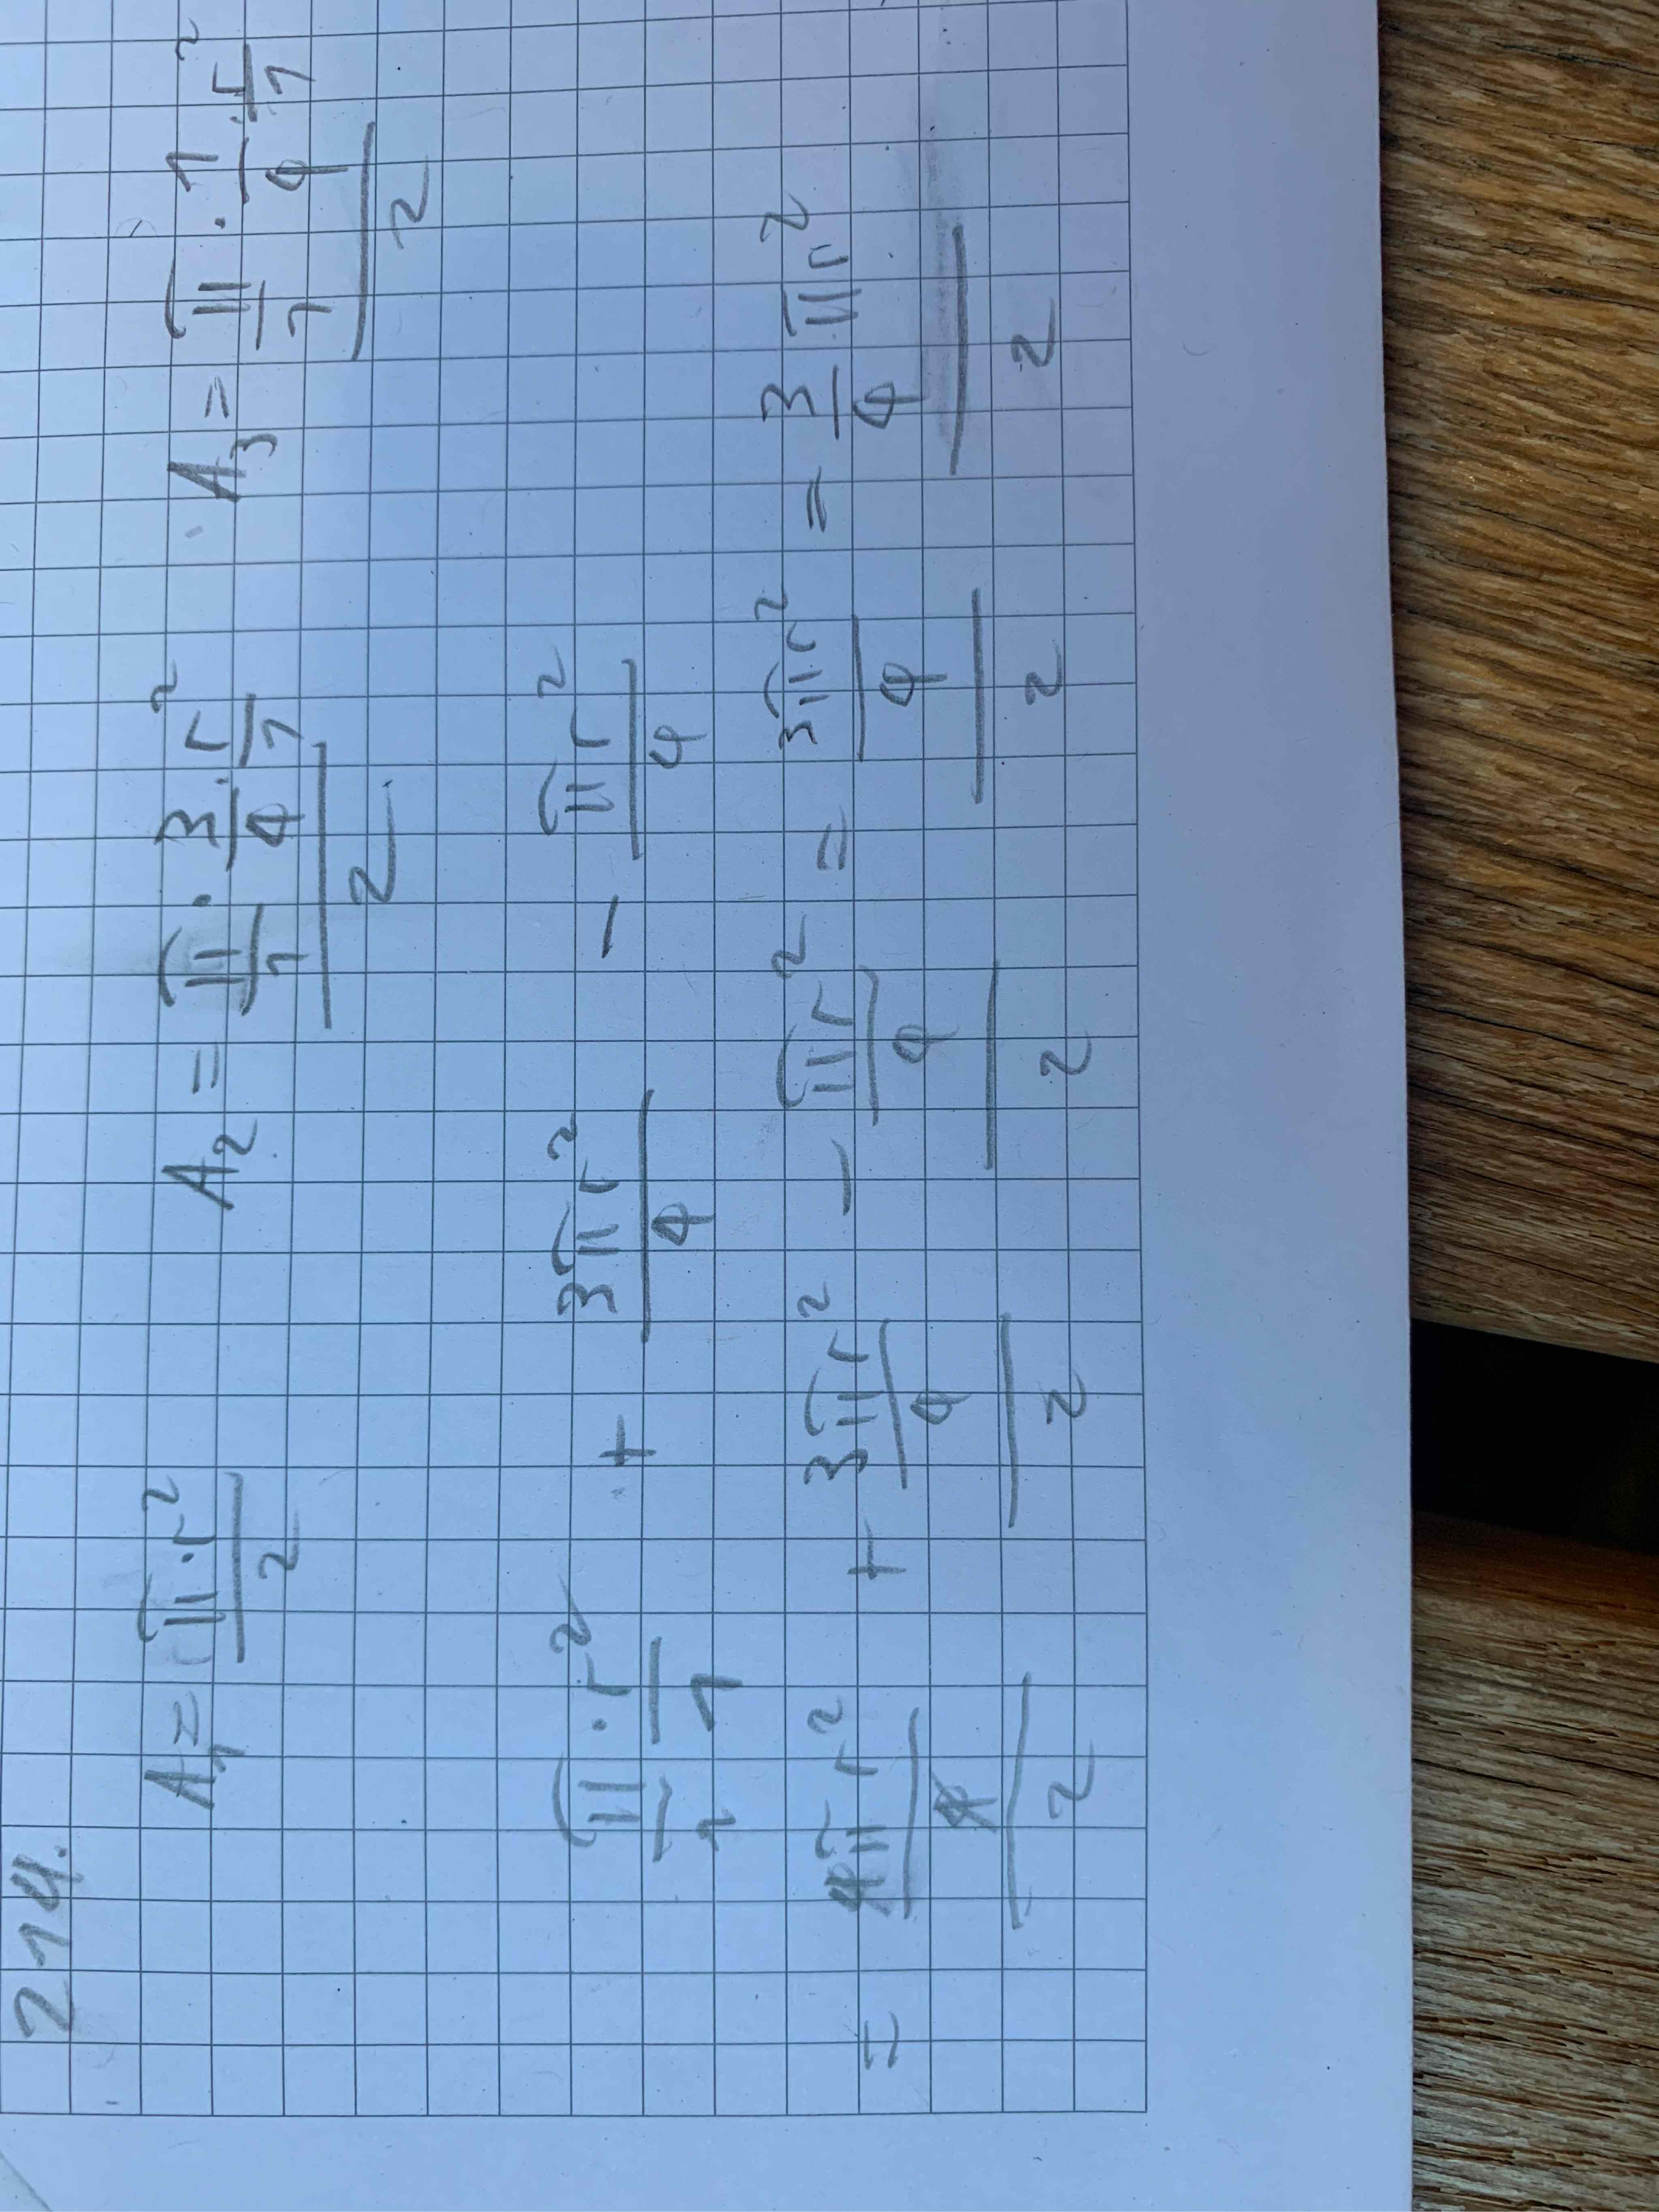 214.
A₁ = (π · r²)/2 A₂ = (π/1 · 3/4 · r²/1)/2 A₃ = (π/1 · 1/4 · r²/1)/2
π/1 · r²/1 + 3πr²/4 − πr²/4
= (4πr²/4)/2 + (3πr²/4)/2 − (πr²/4)/2 = (3πr²/4)/2 = (3/4 πr²)/2